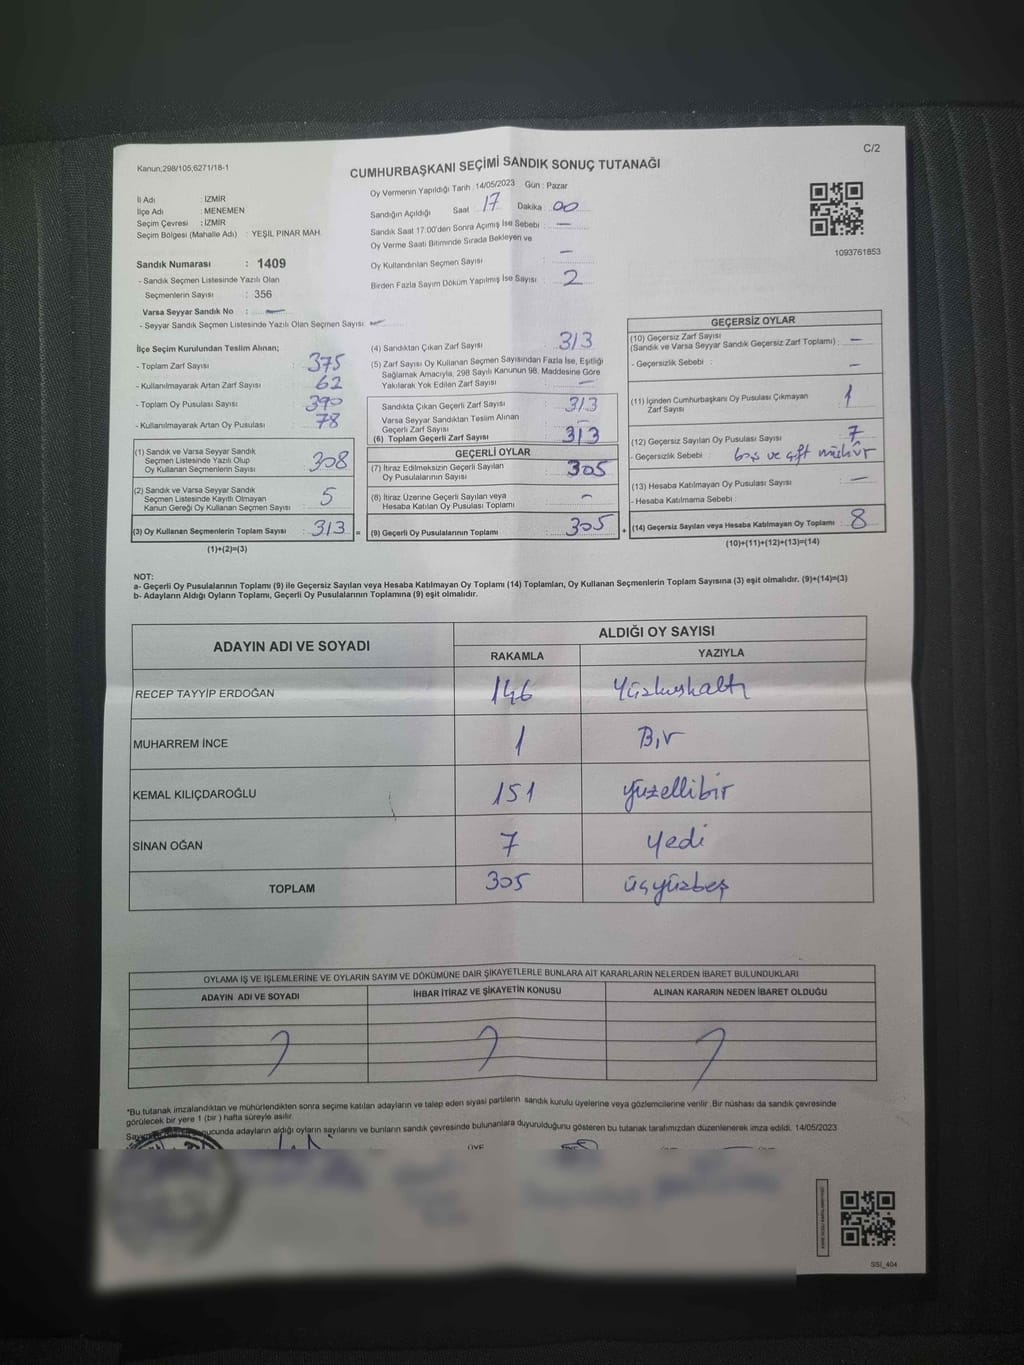 Kanun;298/105,6271/18-1
C/2
CUMHURBAŞKANI SEÇİMİ SANDIK SONUÇ TUTANAĞI
İl Adı : İZMİR
İlçe Adı : MENEMEN
Seçim Çevresi : İZMİR
Seçim Bölgesi (Mahalle Adı) : YEŞİL PINAR MAH.
Sandık Numarası : 1409
- Sandık Seçmen Listesinde Yazılı Olan
Seçmenlerin Sayısı : 356
Varsa Seyyar Sandık No : —
- Seyyar Sandık Seçmen Listesinde Yazılı Olan Seçmen Sayısı: —
Oy Vermenin Yapıldığı Tarih : 14/05/2023 Gün : Pazar
Sandığın Açıldığı Saat 17 Dakika 00
Sandık Saat 17:00'den Sonra Açımış İse Sebebi : —
Oy Verme Saati Bitiminde Sırada Bekleyen ve
Oy Kullandırılan Seçmen Sayısı : —
Birden Fazla Sayım Döküm Yapılmış İse Sayısı : 2
1093761853
İlçe Seçim Kurulundan Teslim Alınan;
- Toplam Zarf Sayısı : 375
- Kullanılmayarak Artan Zarf Sayısı : 62
- Toplam Oy Pusulası Sayısı : 390
- Kullanılmayarak Artan Oy Pusulası : 78
(1) Sandık ve Varsa Seyyar Sandık
Seçmen Listesinde Yazılı Olup
Oy Kullanan Seçmenlerin Sayısı : 308
(2) Sandık ve Varsa Seyyar Sandık
Seçmen Listesinde Kayıtlı Olmayan
Kanun Gereği Oy Kullanan Seçmen Sayısı : 5
(3) Oy Kullanan Seçmenlerin Toplam Sayısı : 313 =
(1)+(2)=(3)
(4) Sandıktan Çıkan Zarf Sayısı : 313
(5) Zarf Sayısı Oy Kullanan Seçmen Sayısından Fazla İse, Eşitliği
Sağlamak Amacıyla, 298 Sayılı Kanunun 98. Maddesine Göre
Yakılarak Yok Edilen Zarf Sayısı : —
Sandıkta Çıkan Geçerli Zarf Sayısı : 313
Varsa Seyyar Sandıktan Teslim Alınan
Geçerli Zarf Sayısı : —
(6) Toplam Geçerli Zarf Sayısı : 313
GEÇERLİ OYLAR
(7) İtiraz Edilmeksizin Geçerli Sayılan
Oy Pusulalarının Sayısı : 305
(8) İtiraz Üzerine Geçerli Sayılan veya
Hesaba Katılan Oy Pusulası Toplamı : —
(9) Geçerli Oy Pusulalarının Toplamı : 305 +
GEÇERSİZ OYLAR
(10) Geçersiz Zarf Sayısı
(Sandık ve Varsa Seyyar Sandık Geçersiz Zarf Toplamı) : —
- Geçersizlik Sebebi : —
(11) İçinden Cumhurbaşkanı Oy Pusulası Çıkmayan
Zarf Sayısı : 1
(12) Geçersiz Sayılan Oy Pusulası Sayısı : 7
- Geçersizlik Sebebi : boş ve çift mühür
(13) Hesaba Katılmayan Oy Pusulası Sayısı : —
- Hesaba Katılmama Sebebi :
(14) Geçersiz Sayılan veya Hesaba Katılmayan Oy Toplamı : 8
(10)+(11)+(12)+(13)=(14)
NOT:
a- Geçerli Oy Pusulalarının Toplamı (9) ile Geçersiz Sayılan veya Hesaba Katılmayan Oy Toplamı (14) Toplamları, Oy Kullanan Seçmenlerin Toplam Sayısına (3) eşit olmalıdır. (9)+(14)=(3)
b- Adayların Aldığı Oyların Toplamı, Geçerli Oy Pusulalarının Toplamına (9) eşit olmalıdır.
ADAYIN ADI VE SOYADI ALDIĞI OY SAYISI
RAKAMLA YAZIYLA
RECEP TAYYİP ERDOĞAN 146 Yüzkırkaltı
MUHARREM İNCE 1 Bir
KEMAL KILIÇDAROĞLU 151 yüzellibir
SİNAN OĞAN 7 yedi
TOPLAM 305 üçyüzbeş
OYLAMA İŞ VE İŞLEMLERİNE VE OYLARIN SAYIM VE DÖKÜMÜNE DAİR ŞİKAYETLERLE BUNLARA AİT KARARLARIN NELERDEN İBARET BULUNDUKLARI
ADAYIN ADI VE SOYADI İHBAR İTİRAZ VE ŞİKAYETİN KONUSU ALINAN KARARIN NEDEN İBARET OLDUĞU
*Bu tutanak imzalandıktan ve mühürlendikten sonra seçime katılan adayların ve talep eden siyasi partilerin sandık kurulu üyelerine veya gözlemcilerine verilir. Bir nüshası da sandık çevresinde
görülecek bir yere 1 (bir) hafta süreyle asılır.
ucunda adayların aldığı oyların sayılarını ve bunların sandık çevresinde bulunanlara duyurulduğunu gösteren bu tutanak tarafımızdan düzenlenerek imza edildi. 14/05/2023
SSI_404